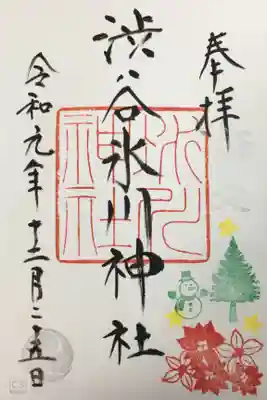 奉拝
渋谷氷川神社
令和元年十二月二五日
氷川神社